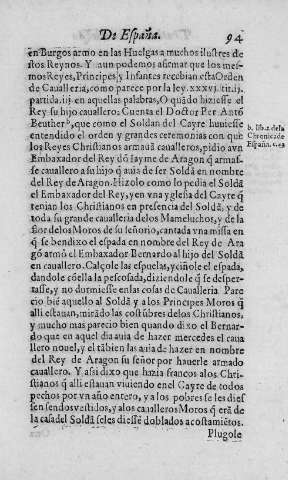 De España. 94
en Burgos armo en las Huelgas a muchos ilustres de
stos Reynos. Y aun podemos afirmar que los mes-
mos Reyes, Principes, y Infantes recebian esta Orden
de Caualleria, como parece por la ley. xxxvj. tit. ij.
partida. iij en aquellas palabras, O quãdo hiziesse el
Rey su hijo cauallero: Cuenta el Doctor Per Antõ
Beuther, que como el Soldan del Cayre huniesse
entendido el orden y grandes ceremonias con que
los Reyes Christianos armauã caualleros, pidio aun
Embaxador del Rey dõ Iayme de Aragon q̃ armas-
se cauallero a su hijo q̃ auia de ser Soldã en nombre
del Rey de Aragon. Hizolo como lo pedia el Soldã
el Embaxador del Rey, y en vna yglesia del Cayre q̃
tenian los Christianos en presencia del Soldã, y de
toda su grande caualleria delos Mameluchos, y de la
flor delos Moros de su señorio, cantada vna missa en
q̃ se bendixo el espada en nombre del Rey de Ara
gõ armò el Embaxador Bernardo al hijo del Soldã
en cauallero. Calçole las espuelas, y ciñole el espada,
dandole cõella la pescosada, diziendole q̃ se desper-
tasse, y no durmiesse en las cosas de Caualleria Pare
cio biẽ aquello al Soldã y a los Principes Moros q̃
alli estauan, mirãdo las costũbres delos Christianos,
y mucho mas parecio bien quando dixo el Bernar-
do que en aquel dia auia de hazer mercedes el caua
llero nouel, y el tãbien las auia de hazer en nombre
del Rey de Aragon su señor por hauerle armado
cauallero. Y assi dixo que hazia francos alos Chri-
stianos q̃ alli estauan viuiendo enel Cayre de todos
pechos por vn año entero, y a los pobres se les dies
sen sendos vestidos, y alos caualleros Moros q̃ erã de
la casa del Soldã seles diesse doblados acostamiẽtos.
Plugole
b. lib. 2 dela
Chronica de
España.